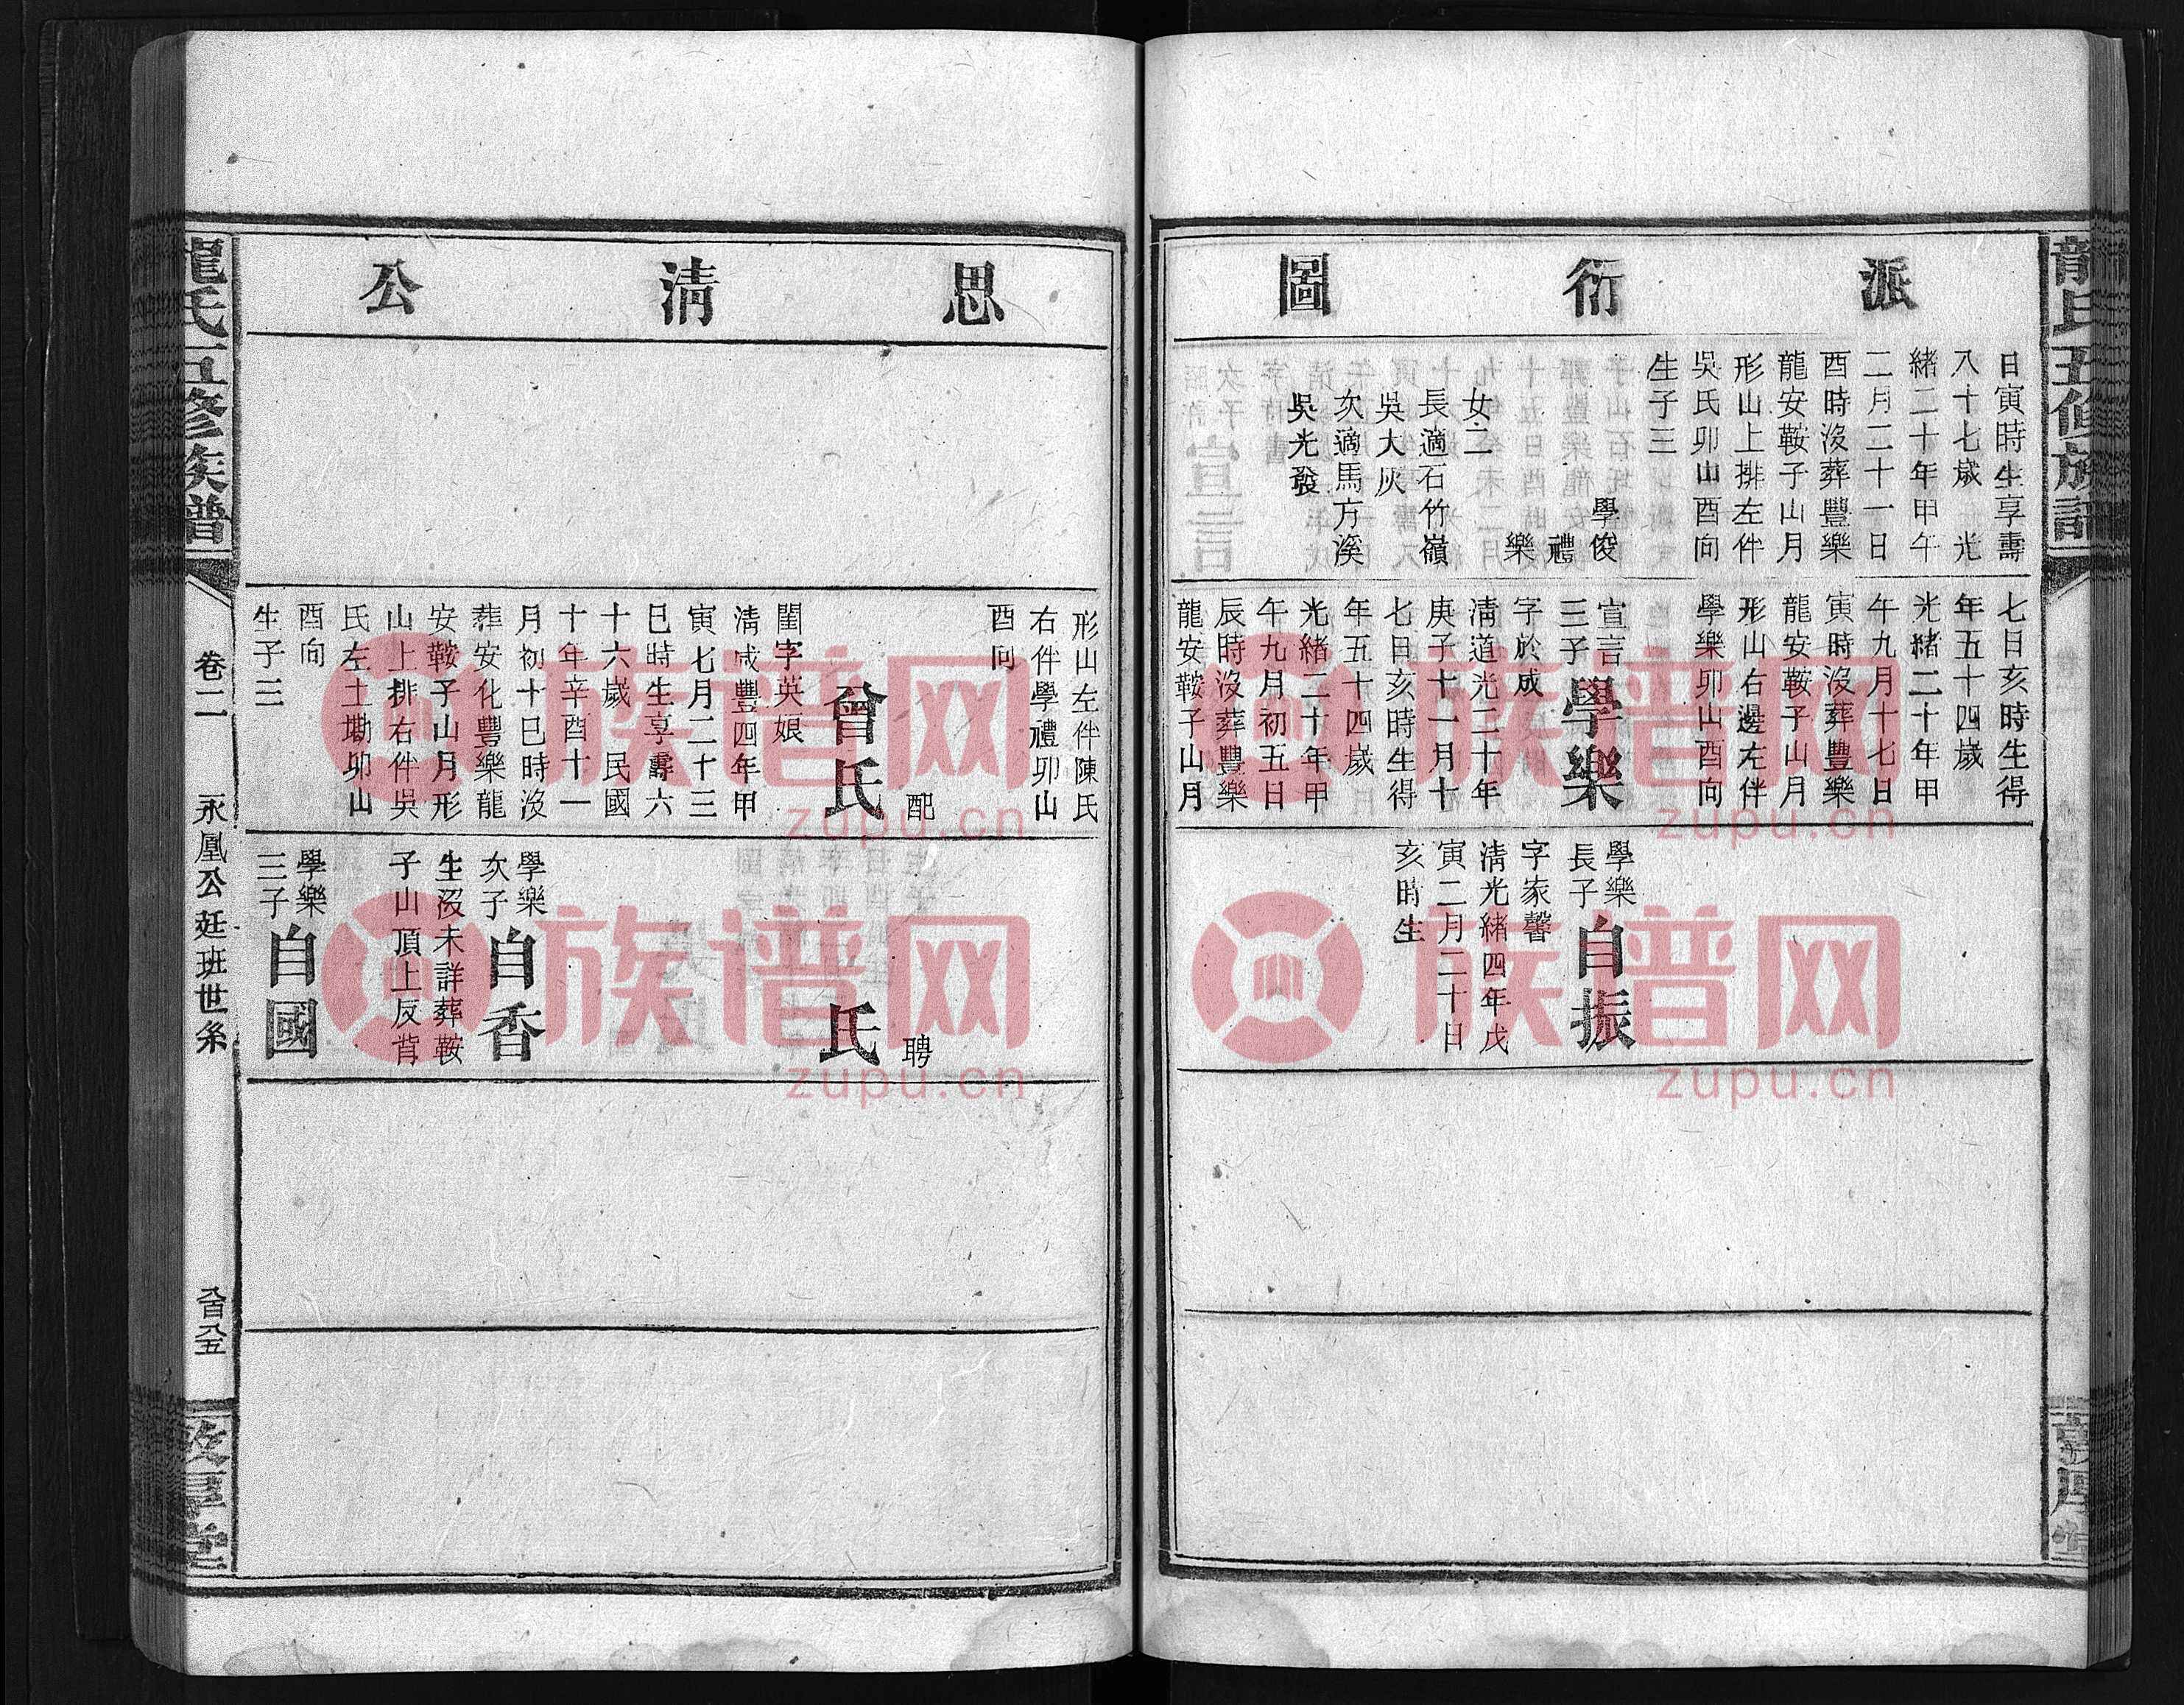 龍氏五修族譜
派衍圖
日寅時生享壽
八十七歲 光
緒二十年甲午
二月二十一日
酉時沒葬豐樂
龍安鞍子山月
形山上排左伴
吳氏卯山酉向
生子三
學俊
禮
樂
女二
長適石竹嶺
吳大灰
次適馬方溪
吳光發
七日亥時生得
年五十四歲
光緒二十年甲
午九月十七日
寅時沒葬豐樂
龍安鞍子山月
形山右邊左伴
學樂卯山酉向
宣言
三子
學樂
字於成
清道光二十年
庚子十一月十
七日亥時生得
年五十四歲
光緒二十年甲
午九月初五日
辰時沒葬豐樂
龍安鞍子山月
學樂
長子
自振
字家馨
清光緒四年戊
寅二月二十日
亥時生
思清公
形山左伴陳氏
右伴學禮卯山
酉向
配
曾氏
閨字英娘
清咸豐四年甲
寅七月二十三
巳時生享壽六
十六歲 民國
十年辛酉十一
月初十巳時沒
葬安化豐樂龍
安鞍子山月形
山上排右伴吳
氏左土墈卯山
酉向
生子三
聘
氏
學樂
次子
自香
生沒未詳葬鞍
子山頂上反背
學樂
三子
自國
龍氏五修族譜
卷二
永凰公廷班世系
八百八五
敦厚堂
族谱网
zupu.cn
族谱网
zupu.cn
族谱网
zupu.cn
族谱网
zupu.cn